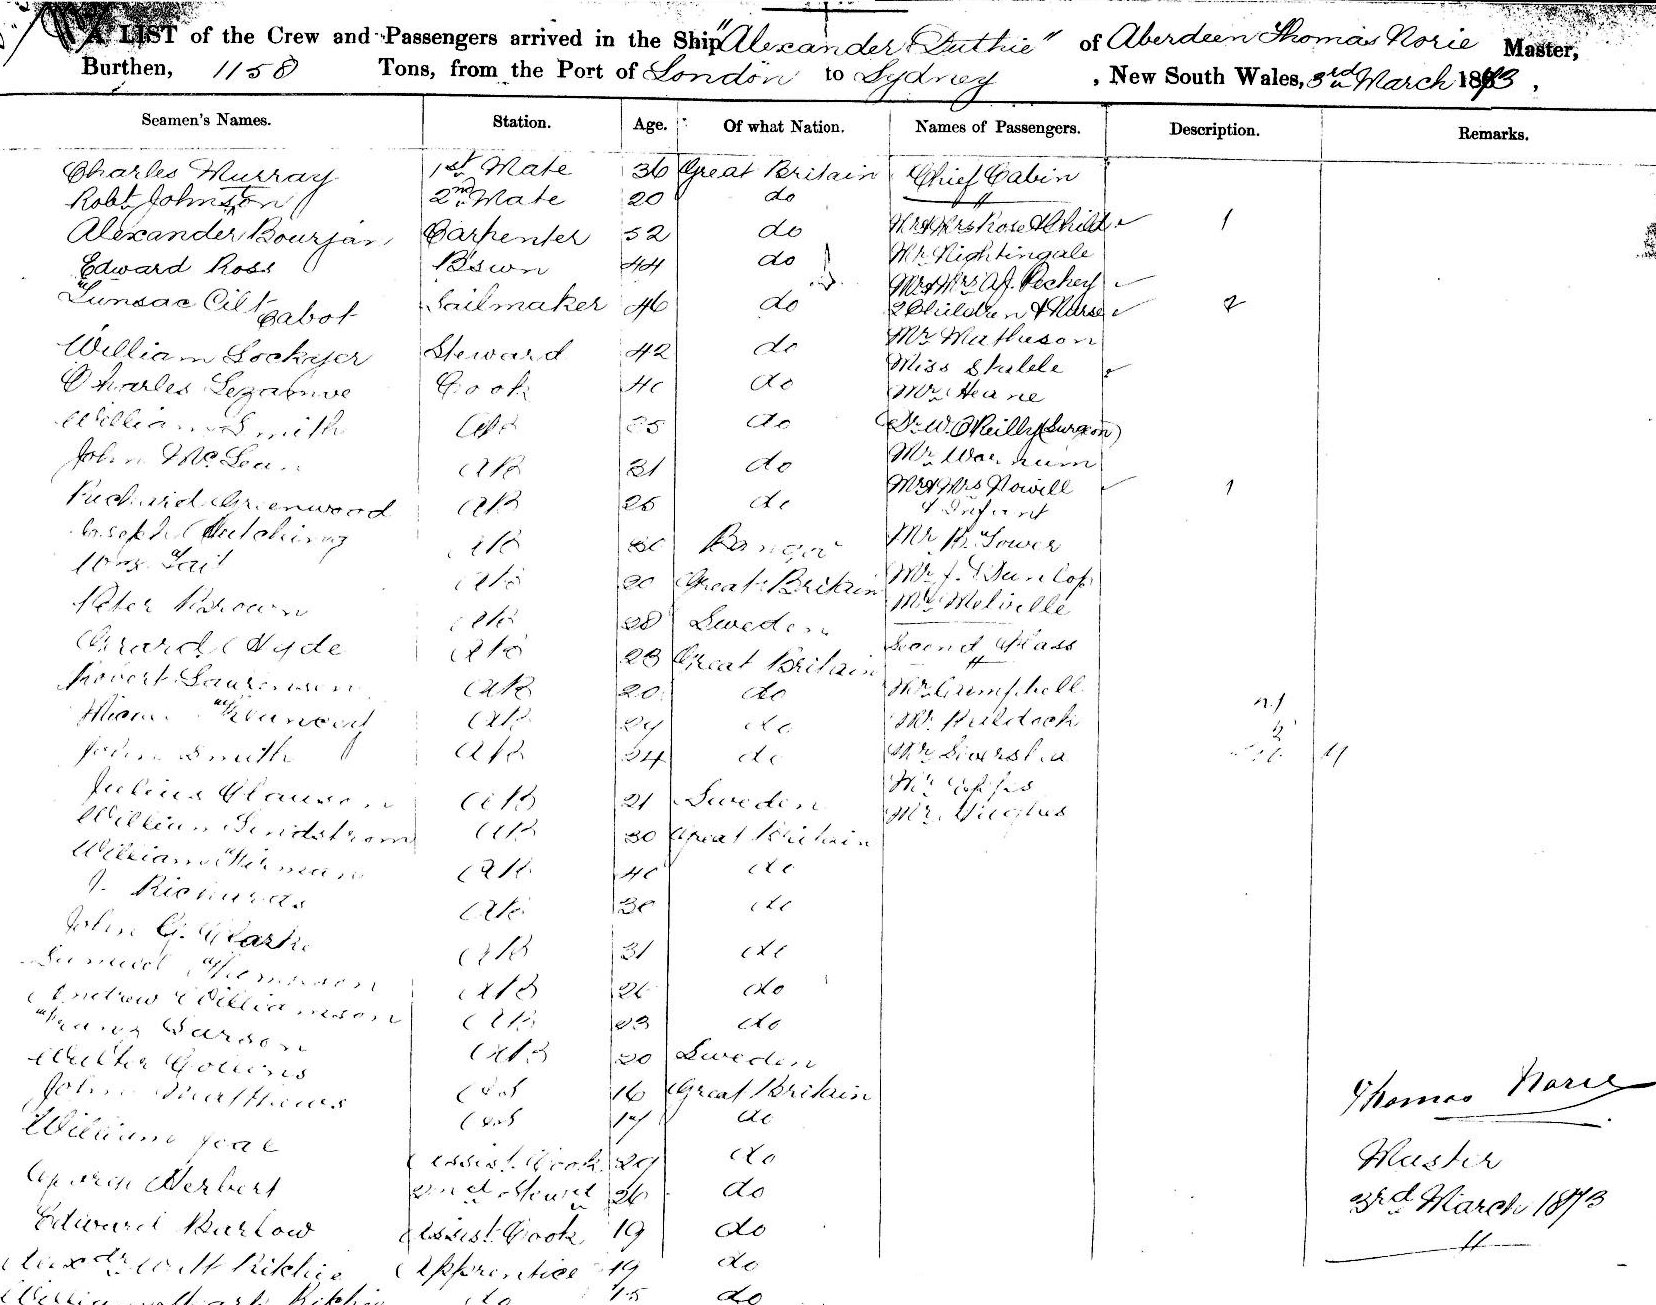 A LIST of the Crew and Passengers arrived in the Ship "Alexander Duthie" of Aberdeen Thomas Norie Master,
Burthen, 1158 Tons, from the Port of London to Sydney, New South Wales, 3rd March 1873,
Seamen's Names. Station. Age. Of what Nation. Names of Passengers. Description. Remarks.
Charles Murray 1st Mate 36 Great Britain Chief Cabin
Robt Johnston 2nd Mate 20 do
Alexander Bourjan Carpenter 52 do Mr & Mrs Rose & Child ✓ 1
Edward Ross B'swn 44 do Mr Nightingale
Mr & Mrs A.J. Pechey ✓
Cabot Sailmaker 46 do 2 Children & Nurse ✓ 2
William Lockyer Steward 42 do Mr Matheson
Miss
Charles Cook 40 do Mr Heane
William Smith AB 25 do Dr W. O'Reilly (Surgeon)
John McLean AB 31 do Mr
Richard Greenwood AB 25 do Mr & Mrs Nowill ✓ 1
& Infant
Joseph Hutchings AB Bangor Mr R. Tower
Tait AB 20 Great Britain Mr J. Dunlop
Peter Brown AB 28 Sweden Mr Melville
Hyde AB 23 Great Britain Second Class
Robert Laurenson AB 20 do Mr Campbell
AB 29 do Mr Puldock
John Smith AB 24 do Mr
Julius Clausen AB 21 Sweden Mr
William Lindstrom AB 30 Great Britain Mr Hughes
William AB 40 do
J. Richards AB 30 do
John G. Clarke AB 31 do
Samuel Thompson AB 26 do
Andrew Williamson AB 23 do
Franz Larson AB 20 Sweden
Walter Collins OS 16 Great Britain Thomas Norie
John Matthews OS 17 do
William Assist. Cook 29 do Master
Herbert 2nd Stewd 26 do 3rd March 1873
Edward Barlow Assist. Cook 19 do
Alexdr Wm Ritchie Apprentice 19 do
William Ritchie do 15 do